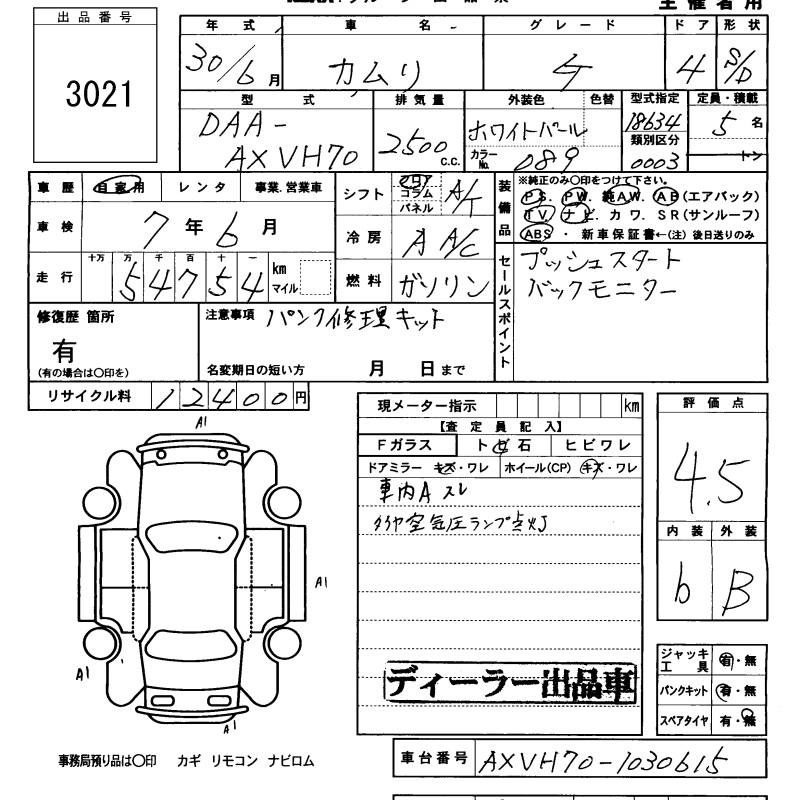 出品番号
3021
年式 車名 グレード ドア 形状
30/6月 カムリ ケ 4 S/D
型式 排気量 外装色 色替 型式指定 定員・積載
DAA-AXVH70 2500c.c. ホワイトパール 18634 5名
カラーNo. 089 類別区分 0003 トン
車歴 自家用 レンタ 事業.営業車
車検 7年6月
走行 十万 万 千 百 十 一
54754 km マイル
シフト フロア コラム パネル A/T
冷房 A A/C
燃料 ガソリン
装備品 ※純正のみ〇印をつけて下さい。
PS. PW. 純AW. AB(エアバック)
TV. ナビ. カワ. SR(サンルーフ)
ABS ・ 新車保証書←(注) 後日送りのみ
セールスポイント
プッシュスタート
バックモニター
修復歴 箇所
有
(有の場合は〇印を)
注意事項 パンク修理キット
名変期日の短い方 月 日まで
リサイクル料 12400円
現メーター指示 km
【査定員記入】
Fガラス トビ石 ヒビワレ
ドアミラー キズ・ワレ ホイール(CP) キズ・ワレ
車内A スレ
タイヤ空気圧ランプ点灯
ディーラー出品車
評価点
4.5
内装 外装
b B
ジャッキ工具 有・無
パンクキット 有・無
スペアタイヤ 有・無
A1
A1
A1
A1
事務局預り品は〇印 カギ リモコン ナビロム
車台番号 AXVH70-1030615